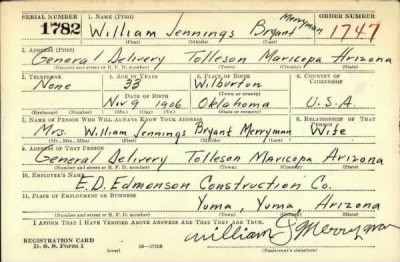 SERIAL NUMBER 1. NAME (Print) ORDER NUMBER
1782 William Jennings Bryant Merryman 1747
(First) (Middle) (Last)
2. ADDRESS (Print)
General Delivery Tolleson Maricopa Arizona
(Number and street or R. F. D. number) (Town) (County) (State)
3. TELEPHONE 4. AGE IN YEARS 5. PLACE OF BIRTH 6. COUNTRY OF CITIZENSHIP
None 33 Wilburton
DATE OF BIRTH (Town or county)
Nov 9 1906 Oklahoma U.S.A.
(Exchange) (No.) (Mo.) (Day) (Yr.) (State or country)
7. NAME OF PERSON WHO WILL ALWAYS KNOW YOUR ADDRESS 8. RELATIONSHIP OF THAT PERSON
Mrs. William Jennings Bryant Merryman Wife
(Mr., Mrs., Miss) (First) (Middle) (Last)
9. ADDRESS OF THAT PERSON
General Delivery Tolleson Maricopa Arizona
(Number and street or R. F. D. number) (Town) (County) (State)
10. EMPLOYER'S NAME
E.D. Edmonson Construction Co.
11. PLACE OF EMPLOYMENT OR BUSINESS
Yuma, Yuma, Arizona
(Number and street or R. F. D. number) (Town) (County) (State)
I AFFIRM THAT I HAVE VERIFIED ABOVE ANSWERS AND THAT THEY ARE TRUE.
REGISTRATION CARD William J Merryman
D. S. S. Form 1 (Registrant's signature)